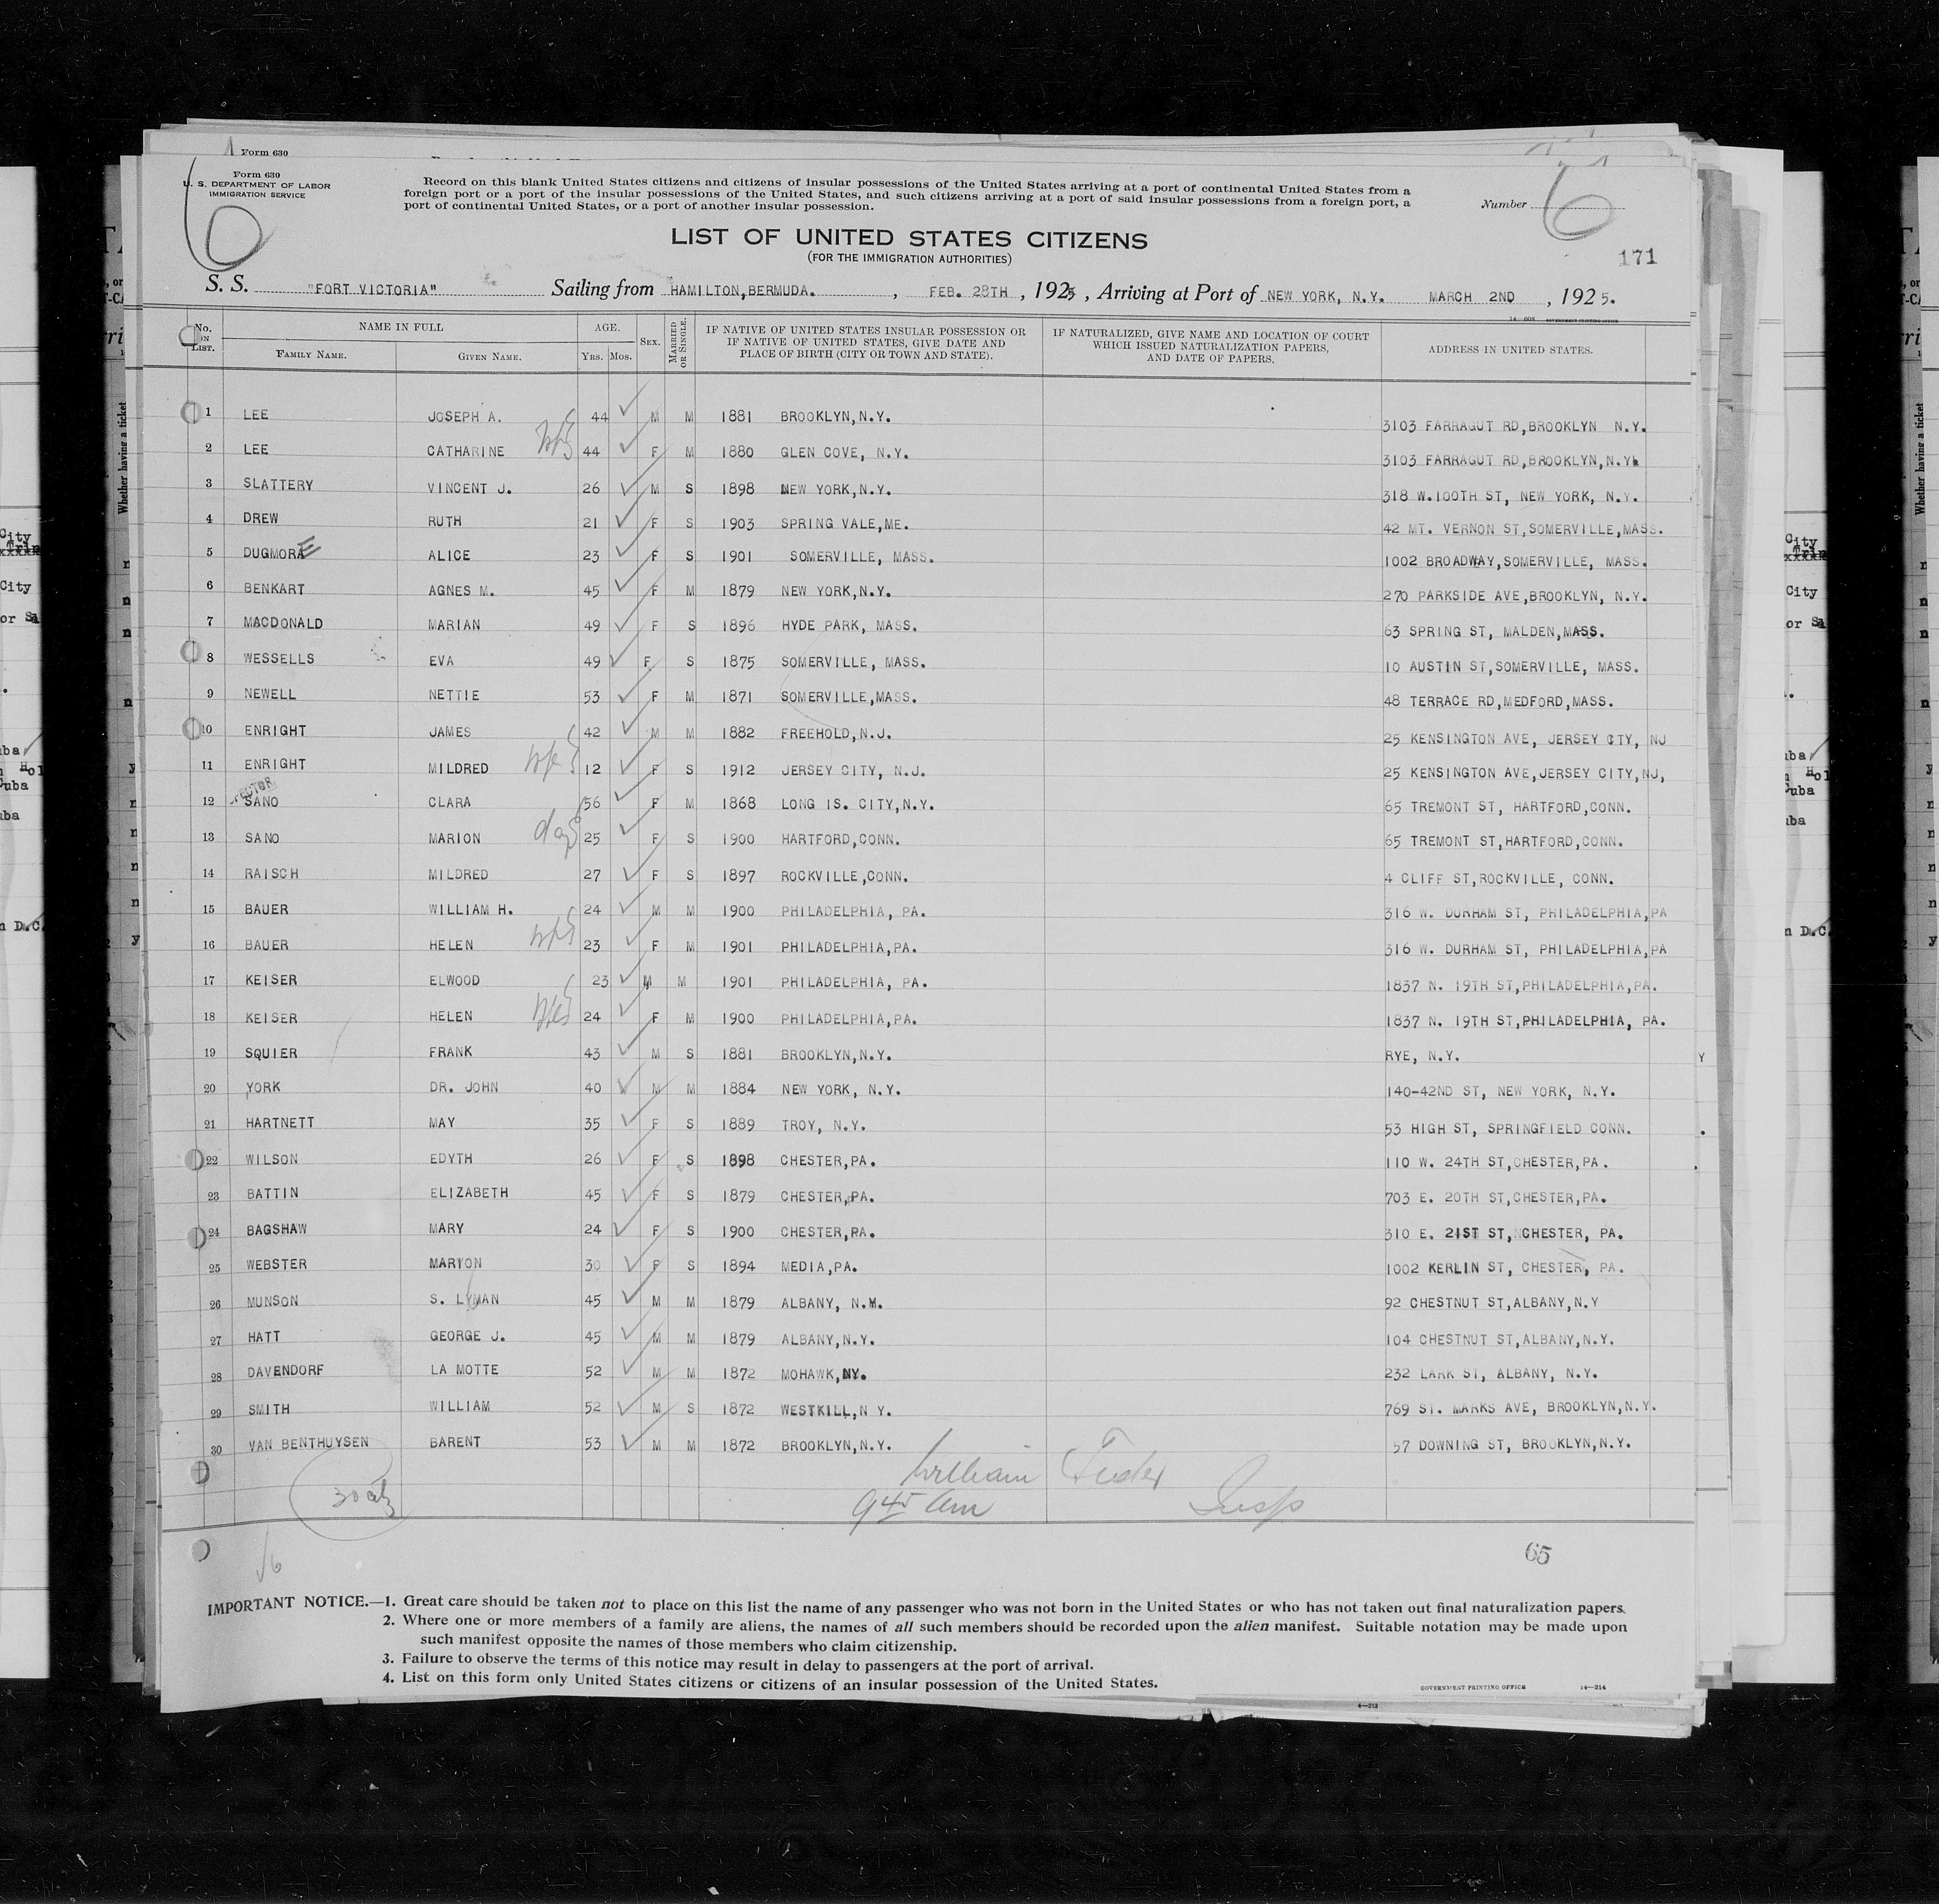 Form 630
Form 630
U. S. DEPARTMENT OF LABOR
IMMIGRATION SERVICE
6
Record on this blank United States citizens and citizens of insular possessions of the United States arriving at a port of continental United States from a
foreign port or a port of the insular possessions of the United States, and such citizens arriving at a port of said insular possessions from a foreign port, a
port of continental United States, or a port of another insular possession.
Number 6
LIST OF UNITED STATES CITIZENS
(FOR THE IMMIGRATION AUTHORITIES)
171
S. S. "FORT VICTORIA" Sailing from HAMILTON,BERMUDA. , FEB. 28TH , 1925 , Arriving at Port of NEW YORK, N.Y. MARCH 2ND , 1925.
No. ON LIST. NAME IN FULL FAMILY NAME. GIVEN NAME. AGE. YRS. MOS. SEX. MARRIED OR SINGLE. IF NATIVE OF UNITED STATES INSULAR POSSESSION OR IF NATIVE OF UNITED STATES, GIVE DATE AND PLACE OF BIRTH (CITY OR TOWN AND STATE). IF NATURALIZED, GIVE NAME AND LOCATION OF COURT WHICH ISSUED NATURALIZATION PAPERS, AND DATE OF PAPERS. ADDRESS IN UNITED STATES.
1 LEE JOSEPH A. 44 M M 1881 BROOKLYN,N.Y. 3103 FARRAGUT RD,BROOKLYN N.Y.
2 LEE CATHARINE 44 F M 1880 GLEN COVE, N.Y. 3103 FARRAGUT RD,BROOKLYN,N.Y.
3 SLATTERY VINCENT J. 26 M S 1898 NEW YORK,N.Y. 318 W.100TH ST, NEW YORK, N.Y.
4 DREW RUTH 21 F S 1903 SPRING VALE,ME. 42 MT. VERNON ST,SOMERVILLE,MASS.
5 DUGMORE ALICE 23 F S 1901 SOMERVILLE, MASS. 1002 BROADWAY,SOMERVILLE, MASS.
6 BENKART AGNES M. 45 F M 1879 NEW YORK,N.Y. 270 PARKSIDE AVE,BROOKLYN, N.Y.
7 MACDONALD MARIAN 49 F S 1896 HYDE PARK, MASS. 63 SPRING ST, MALDEN,MASS.
8 WESSELLS EVA 49 F S 1875 SOMERVILLE, MASS. 10 AUSTIN ST,SOMERVILLE, MASS.
9 NEWELL NETTIE 53 F M 1871 SOMERVILLE,MASS. 48 TERRACE RD,MEDFORD,MASS.
10 ENRIGHT JAMES 42 M M 1882 FREEHOLD,N.J. 25 KENSINGTON AVE, JERSEY CTY, NJ
11 ENRIGHT MILDRED 12 F S 1912 JERSEY CITY, N.J. 25 KENSINGTON AVE,JERSEY CITY,NJ,
12 SANO CLARA 56 F M 1868 LONG IS. CITY,N.Y. 65 TREMONT ST, HARTFORD,CONN.
13 SANO MARION 25 F S 1900 HARTFORD,CONN. 65 TREMONT ST,HARTFORD,CONN.
14 RAISCH MILDRED 27 F S 1897 ROCKVILLE,CONN. 4 CLIFF ST,ROCKVILLE, CONN.
15 BAUER WILLIAM H. 24 M M 1900 PHILADELPHIA, PA. 316 W. DURHAM ST, PHILADELPHIA,PA
16 BAUER HELEN 23 F M 1901 PHILADELPHIA,PA. 316 W. DURHAM ST, PHILADELPHIA,PA
17 KEISER ELWOOD 23 M M 1901 PHILADELPHIA, PA. 1837 N. 19TH ST,PHILADELPHIA,PA.
18 KEISER HELEN 24 F M 1900 PHILADELPHIA,PA. 1837 N. 19TH ST,PHILADELPHIA, PA.
19 SQUIER FRANK 43 M S 1881 BROOKLYN,N.Y. RYE, N.Y.
20 YORK DR. JOHN 40 M M 1884 NEW YORK, N.Y. 140-42ND ST, NEW YORK, N.Y.
21 HARTNETT MAY 35 F S 1889 TROY, N.Y. 53 HIGH ST, SPRINGFIELD CONN.
22 WILSON EDYTH 26 F S 1898 CHESTER,PA. 110 W. 24TH ST,CHESTER,PA.
23 BATTIN ELIZABETH 45 F S 1879 CHESTER,PA. 703 E. 20TH ST,CHESTER,PA.
24 BAGSHAW MARY 24 F S 1900 CHESTER,PA. 310 E. 21ST ST, CHESTER, PA.
25 WEBSTER MARYON 30 F S 1894 MEDIA,PA. 1002 KERLIN ST, CHESTER, PA.
26 MUNSON S. LYMAN 45 M M 1879 ALBANY, N.Y. 92 CHESTNUT ST,ALBANY,N.Y
27 HATT GEORGE J. 45 M M 1879 ALBANY,N.Y. 104 CHESTNUT ST,ALBANY,N.Y.
28 DAVENDORF LA MOTTE 52 M M 1872 MOHAWK,NY. 232 LARK ST, ALBANY, N.Y.
29 SMITH WILLIAM 52 M S 1872 WESTKILL,N Y. 769 ST. MARKS AVE, BROOKLYN,N.Y.
30 VAN BENTHUYSEN BARENT 53 M M 1872 BROOKLYN,N.Y. 57 DOWNING ST, BROOKLYN,N.Y.
William
945 am Insp
65
IMPORTANT NOTICE.—1. Great care should be taken not to place on this list the name of any passenger who was not born in the United States or who has not taken out final naturalization papers.
2. Where one or more members of a family are aliens, the names of all such members should be recorded upon the alien manifest. Suitable notation may be made upon
such manifest opposite the names of those members who claim citizenship.
3. Failure to observe the terms of this notice may result in delay to passengers at the port of arrival.
4. List on this form only United States citizens or citizens of an insular possession of the United States.
GOVERNMENT PRINTING OFFICE 14—214